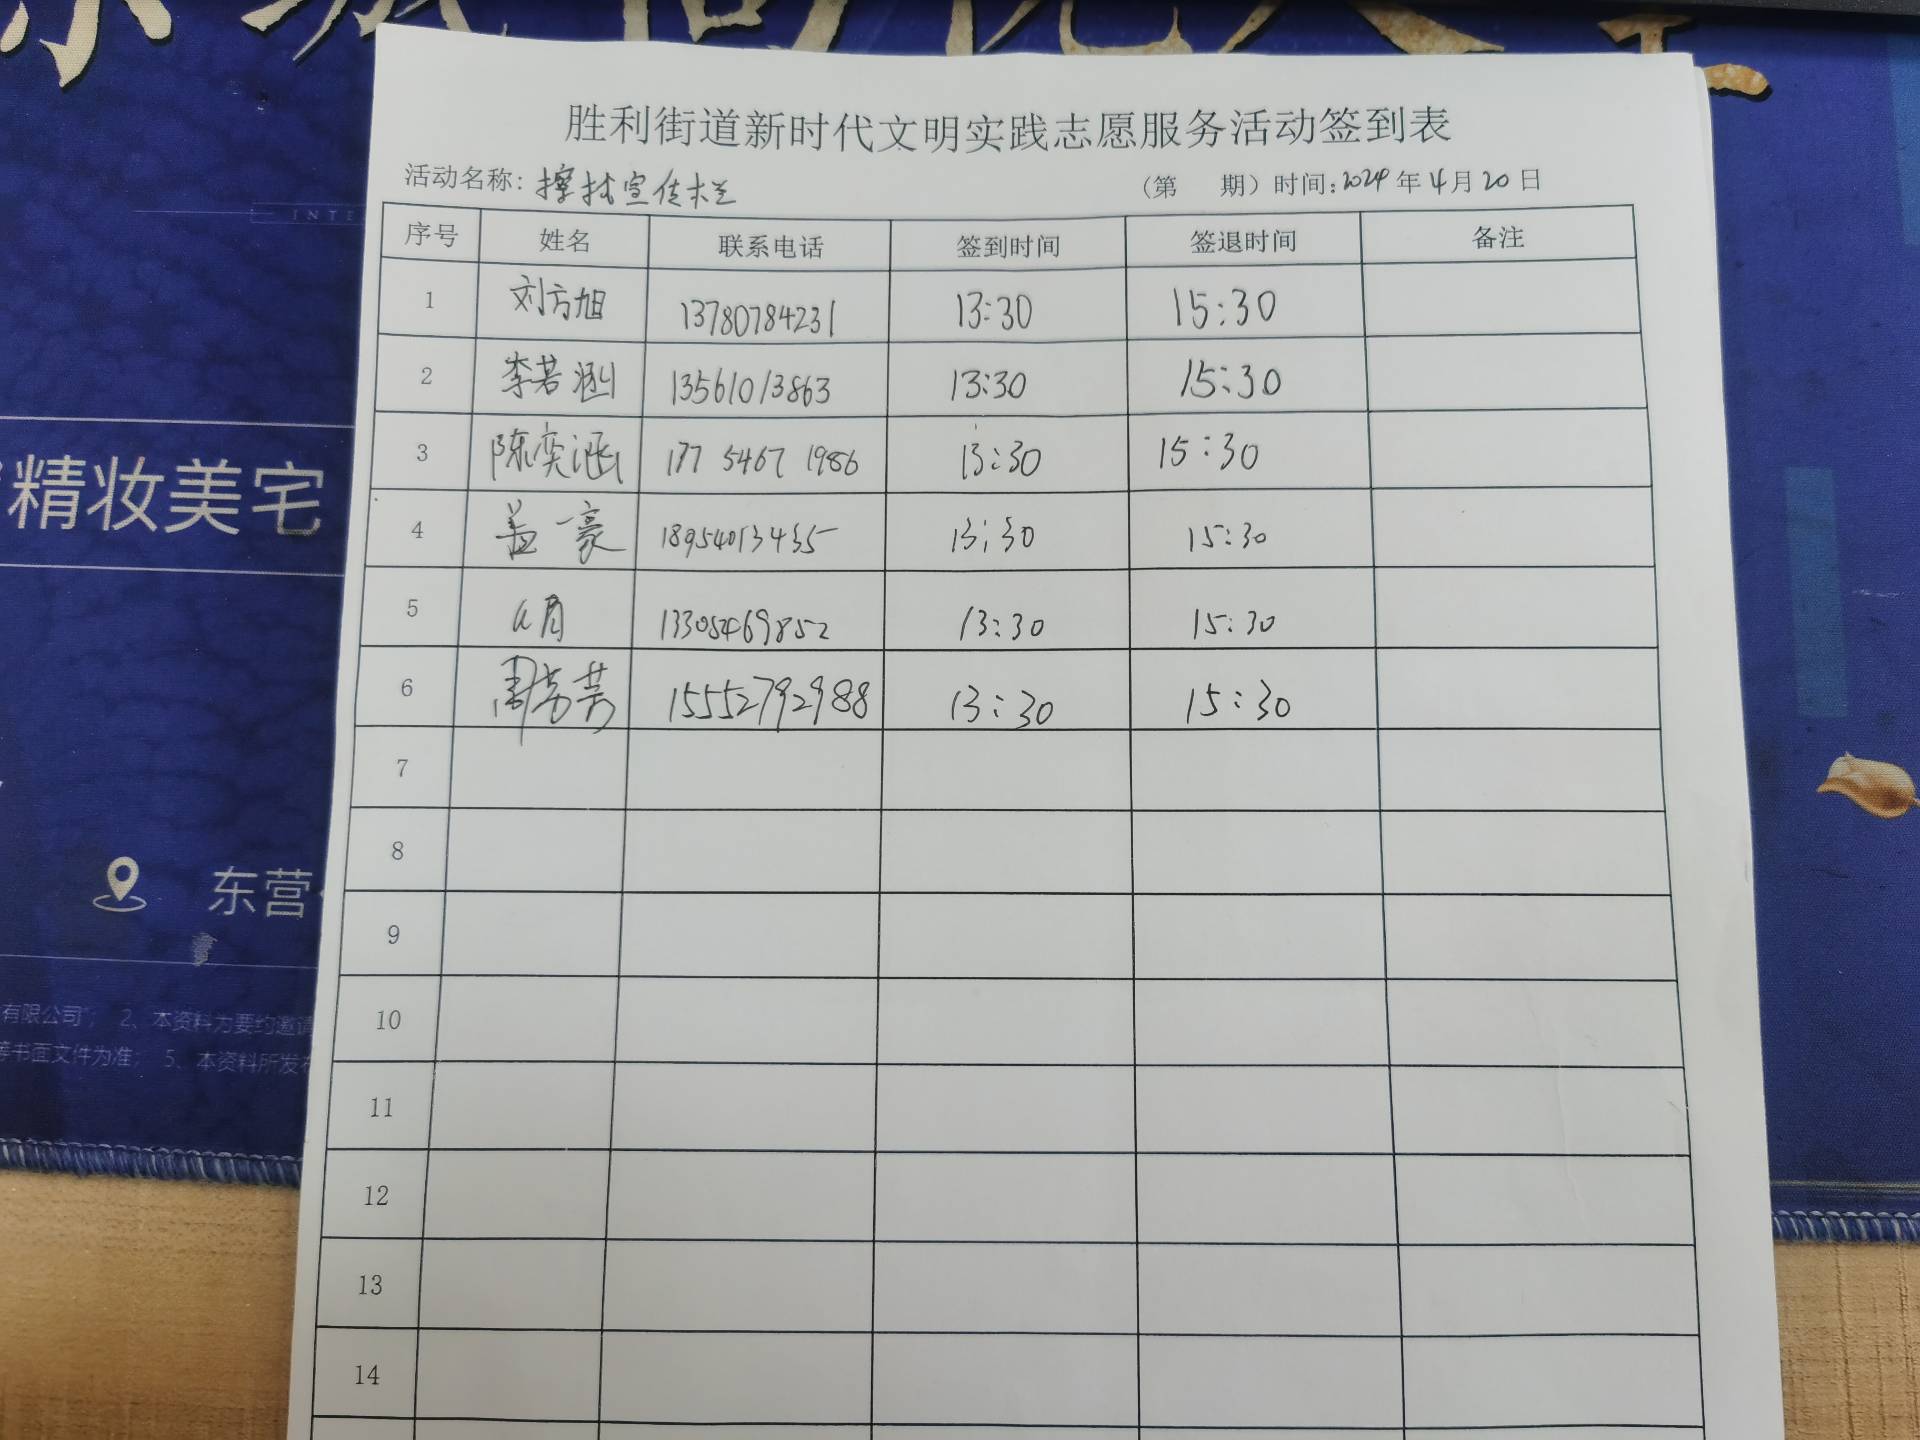 INTE
精妆美宅
东营
有限公司"; 2、本资料为要约邀请
等书面文件为准; 5、本资料所发布
胜利街道新时代文明实践志愿服务活动签到表
活动名称: 擦拭宣传栏 (第 期) 时间: 2024 年 4 月 20 日
序号 姓名 联系电话 签到时间 签退时间 备注
1 刘方旭 13780784231 13:30 15:30
2 李若涵 13561013863 13:30 15:30
3 陈奕涵 177 5467 1986 13:30 15:30
4 盖一豪 18954013435 13:30 15:30
5 13305469852 13:30 15:30
6 15552792988 13:30 15:30
7
8
9
10
11
12
13
14